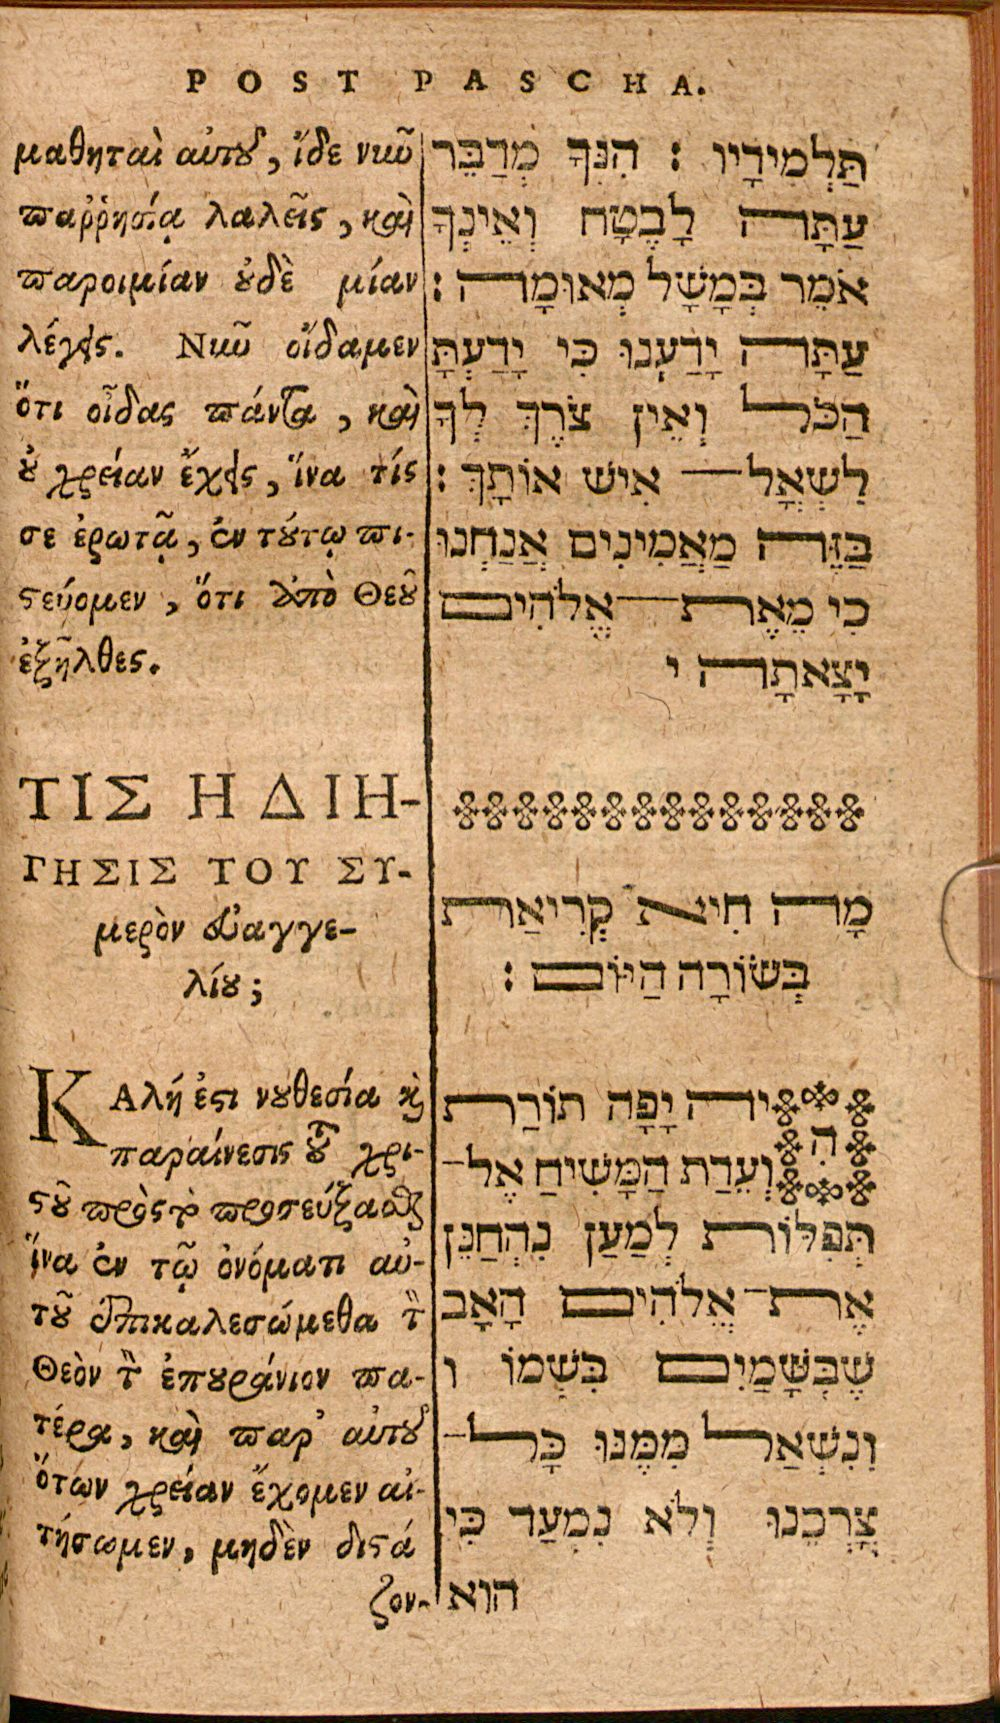 POST PASCHA.
μαθηταὶ αὐτοῦ, ἴδε νῦν
παῤῥησίᾳ λαλεῖς, καὶ
παροιμίαν οὐδὲ μίαν
λέγεις. Νῦν οἴδαμεν
ὅτι οἶδας πάντα, καὶ
οὐ χρείαν ἔχεις, ἵνα τίς
σε ἐρωτᾷ, ἐν τούτῳ πι-
στεύομεν, ὅτι ἀπὸ Θεοῦ
ἐξῆλθες.
ΤΙΣ Η ΔΙΗ-
ΓΗΣΙΣ ΤΟΥ ΣΥ-
μερὸν εὐαγγε-
λίου;
ΚΑλή ἐστι νουθεσία καὶ
παραίνεσις τοῦ χρι-
στοῦ πρὸς τὸ προσεύξασθαι
ἵνα ἐν τῷ ὀνόματι αὐ-
τοῦ ἐπικαλεσώμεθα τὸν
Θεὸν τὸν ἐπουράνιον πα-
τέρα, καὶ παρ' αὐτοῦ
ὅτων χρείαν ἔχομεν αἰ-
τήσωμεν, μηδὲν διστά
ζον-
תַּלְמִידָיו : הִנְּךָ מְדַבֵּר
עַתָּה לָבֶטָח וְאֵינְךָ
אֹמֵר בְּמָשָׁל מְאוּמָה :
עַתָּה יָדַעְנוּ כִּי יָדַעְתָּ
הַכֹּל וְאֵין צֹרֶךְ לְךָ
לִשְׁאָל אִישׁ אוֹתָךְ :
בַּזֶּה מַאֲמִינִים אֲנַחְנוּ
כִּי מֵאֶת אֱלֹהִים
יָצָאתָה י
מָה חִיא קְרִיאַת
בְּשׂוֹרָה הַיּוֹם :
הִיה יָפָה תוֹרַת
וְעֵדַת הַמָּשִׁיחַ אֶל־
תְּפִלּוֹת לְמַעַן נִהְחַנֵּן
אֶת־אֱלֹהִים הָאָב
שֶׁבְּשָּׁמַיִם בִּשְׁמוֹ ו
וְנִשְׁאַל מִמֶּנּוּ כָּל־
צָרְכֵנוּ וְלֹא נִמְעַד כִּי
הוא